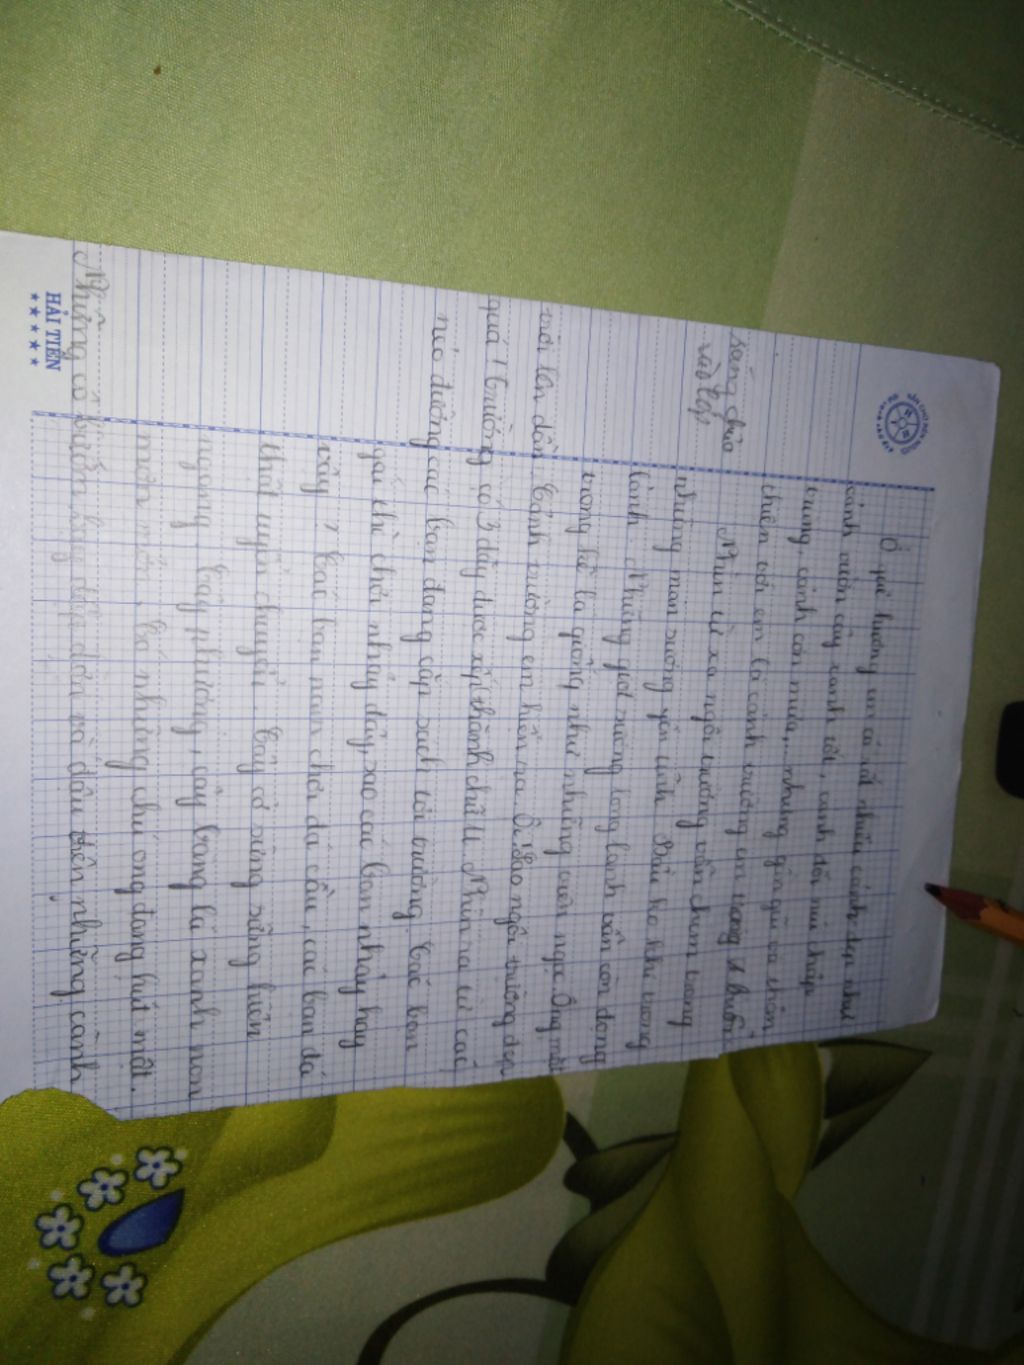 Ở quê hương em có rất nhiều cảnh đẹp như
cánh vườn cây xanh tốt, cánh đồi núi chập
trùng, cánh cơn mưa,... nhưng gần gũi và thân
thiện với em là cảnh trường em trong 1 buổi
sáng chưa
vào lớp
Nhìn từ xa ngôi trường vẫn chìm trong
những màn sương yên tĩnh. Bầu ko khí trong
lành. Những giọt sương long lanh vẫn còn đọng
trong kẽ lá giống như những viên ngọc. Ông mặt
trời lên dần. Cảnh trường em hiện ra. Ôi! Sao ngôi trường đẹp
quá! Trường có 3 dãy được xếp thành chữ U. Nhìn ra từ các
nẻo đường các bạn đang cắp sách tới trường. Các bạn
gái thì chơi nhảy dây, sao các bạn nhảy hay
vậy? Các bạn nam chơi đá cầu, các bạn đá
thật uyển chuyển. Cây cỏ sừng sững hiên
ngang. Cây phượng, cây bàng lá xanh non
mơn mởn. Có những chú ong đang hút mật.
Những cô bướm bay dập dờn và đậu trên những cành
HẢI TIẾN